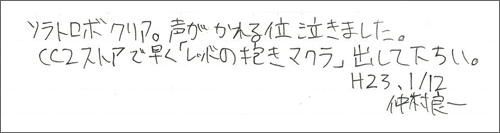 ソラトロボクリア。声がかれる位泣きました。
CC2ストアで早く「レッドの抱きマクラ」出して下ちい。
H23.1/12
仲村良一